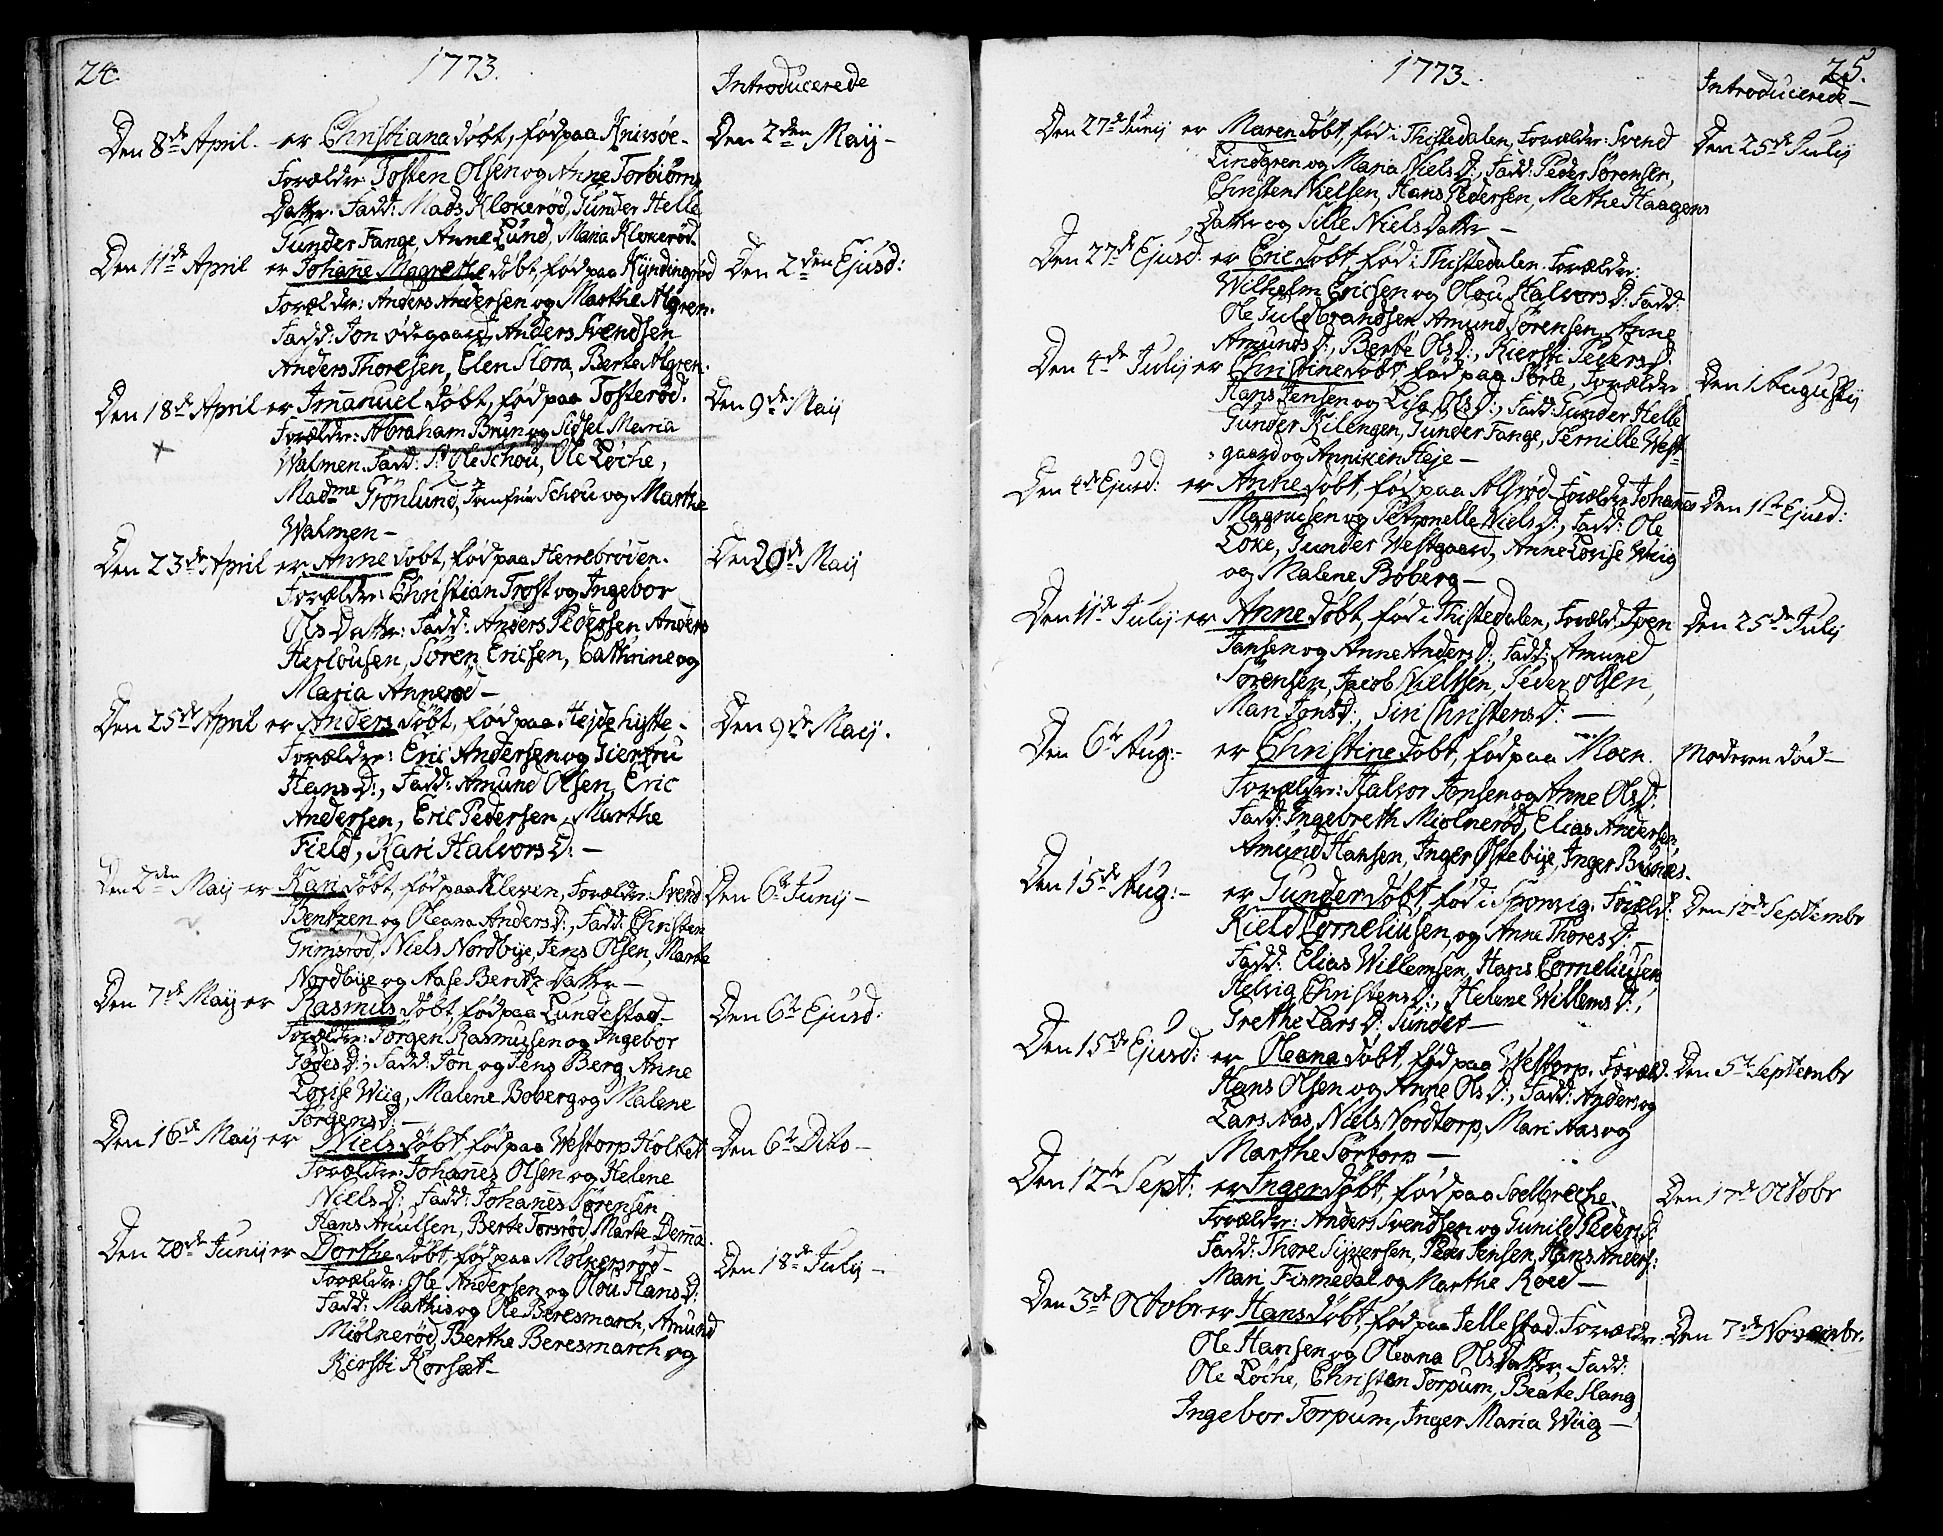 24.
1773.
Introducerede
Den 8de April. er Christiana döbt, föd paa Knivsöe- Den 2den Maij-
Forældre: Tosten Olsen og Anne Torbiörns
Datter. Fadd: Mads Klokeröd, Gunder Helle
Gunder Fange, Anne Lund, Maria Klokeröd.
Den 11de April er Johanne Magrethe döbt, föd paa Kyndingröd Den 2den Ejusd:
Forældre: Anders Andersen og Marthe Algren.
Fadd: Jon Ödegaard, Anders Svendsen
Anders Thoresen, Elen Flora, Berte Algren.
Den 18de April er Imanuel döbt, föd paa Tosteröd. Den 9de Maij
Forældre: Abraham Brun og Sidsel Maria
Walmen. Fadd: Sr Ole Schou, Ole Löche,
Madme Grönlund, Jomfrue Schou og Marthe
Walmen-
Den 23de April er Anne döbt, föd paa Herrebröden. Den 20de Maij
Forældre: Christian Trost og Ingebor
Ols Datter: Fadd: Anders Pedersen Anders
Herlousen, Sören Ericsen, Cathrine og
Maria Anneröd-
Den 25de April er Anders döbt, föd paa Hejdehytte- Den 9de Maij.
Forældre: Eric Andersen og Giertru
Hans D:, Fadd: Amund Olsen, Eric
Andersen, Eric Pedersen, Marthe
Field, Kari Halvors D:-
Den 2den Maij er Kari döbt, föd paa Kleven, Forældre: Svend Den 6te Junij-
Bentzen og Oleana Anders D:, Fadd: Christen
Grimsröd, Niels Nordbye, Jens Olsen, Marte
Nordbye og Aase Bentz Datter-
Den 7de Maij er Rasmus döbt, föd paa Lundestad- Den 6te Ejusd:
Forældre: Jörgen Rasmussen og Ingebor
Godes D:, Fadd: Jon og Jens Berg Anne
Lovise Wiig, Malene Boberg og Malene
Jörgens D:-
Den 16de Maij er Niels döbt, föd paa Westorp Holtet Den 6te Dito-
Forældre: Johannes Olsen og Helene
Niels D:, Fadd: Johannes Sörensen,
Hans Anulsen, Berte Torsröd, Marte Demma.
Den 20de Junij er Dorthe döbt, föd paa Mölnersröd- Den 18de Julij-
Forældre: Ole Andersen og Olou Hans D:
Fadd: Mathis og Ole Beresmarch, Amund
Miölneröd, Berthe Beresmarch og
Kirsti Korsæt-
25.
1773.
Introducerede-
Den 27de Junij er Maren döbt, föd i Thistedalen, Forældre: Svend Den 25de Julij
Lindgren og Maria Niels D:, Fadd: Peder Sörensen,
Christen Nielsen, Hans Pedersen, Methe Haagens
Datter og Sille Niels Datter-
Den 27de Ejusd: er Eric döbt föd i Thistedalen. Forældre:
Wilhelm Ericsen og Olou Halvors D: Fadd:
Ole Guldbrandsen Amund Sörensen, Anne
Amunds D:, Berte Ols D:, Kiersti Peders D.
Den 4de Julij er Christine döbt, föd paa Sörle, Forældre Den 1 Augustij
Hans Jensen og Lisa Ols D:, Fadd: Gunder Helle
Gunder Kilengen, Gunder Fange, Pernille West-
gaard og Anniken Heje-
Den 4de Ejusd: er Anne döbt, föd paa Alsröd Forældre Johannes Den 1ste Ejusd:
Magnusen og Petronelle Niels D:, Fadd: Ole
Löke, Gunder Westgaard, Anne Lovise Wiig
og Malene Boberg-
Den 11de Julij er Anne döbt, föd i Thistedalen, Foræld: Iven Den 25de Julij
Jansen og Anne Anders D:, Fadd: Amund
Sörensen, Jacob Nielssen, Peder Olsen,
Mari Jons D:, Siri Christens D:-
Den 6te Aug:- er Christine döbt, föd paa Moen. Moderen död-
Forældre: Halvor Jonsen og Anne Ols D:
Fadd: Ingebreth Miölneröd, Elias Andersen,
Amund Hansen, Inger Östebye, Inger Busnes.
Den 15de Aug:- er Gunder döbt, föd i Sponvig. Foræld: Den 12te Septembr
Kield Corneliusen, og Anne Thores D:
Fadd: Elias Willemsen, Hans Corneliusen
Helvig Christens D:, Helene Willems D:,
Grethe Lars D: Sundet-
Den 15de Ejusd: er Oleana döbt, föd paa Westorp. Foræld. Den 5te Septembr
Hans Olsen og Anne Ols D:, Fadd: Anders og
Lars Aas, Niels Nordtorp, Mari Aas og
Marthe Sörtorp-
Den 12te Sept: er Inger döbt, föd paa Soelbreche. Den 17de Octobr
Forældre: Anders Svendsen og Gunild Peders D.
Fadd: Thore Sijversen, Peder Jensen, Hans Anders:
Mari Fismedal og Marthe Roed-
Den 3de Octobr er Hans döbt, föd paa Jellestad. Forældre: Den 7de Novembr.
Ole Hansen og Oleana Ols Datter, Fadd:
Ole Löche, Christen Torpum, Beate Slang
Ingebor Torpum, Inger Maria Wiig-